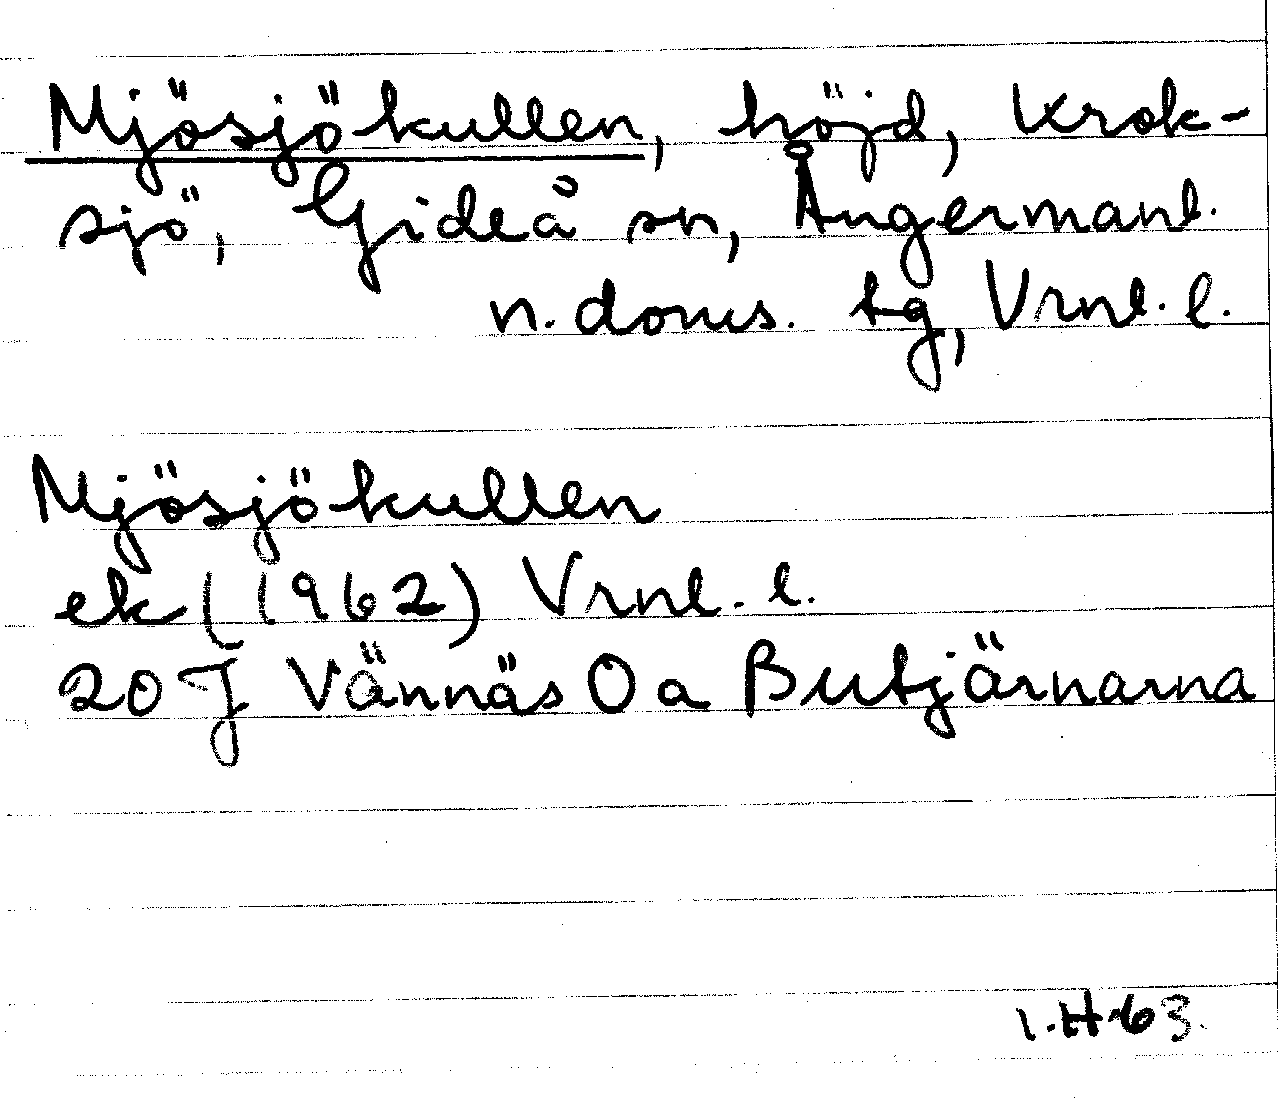 Mjösjökullen, höjd, Krok-
sjö, Gideå sn, Ångermanl.
n. doms. tg, Vrnl. l.
Mjösjökullen
ek (1962) Vrnl. l.
20 J Vännäs O a Butjärnarna
1.H.63.